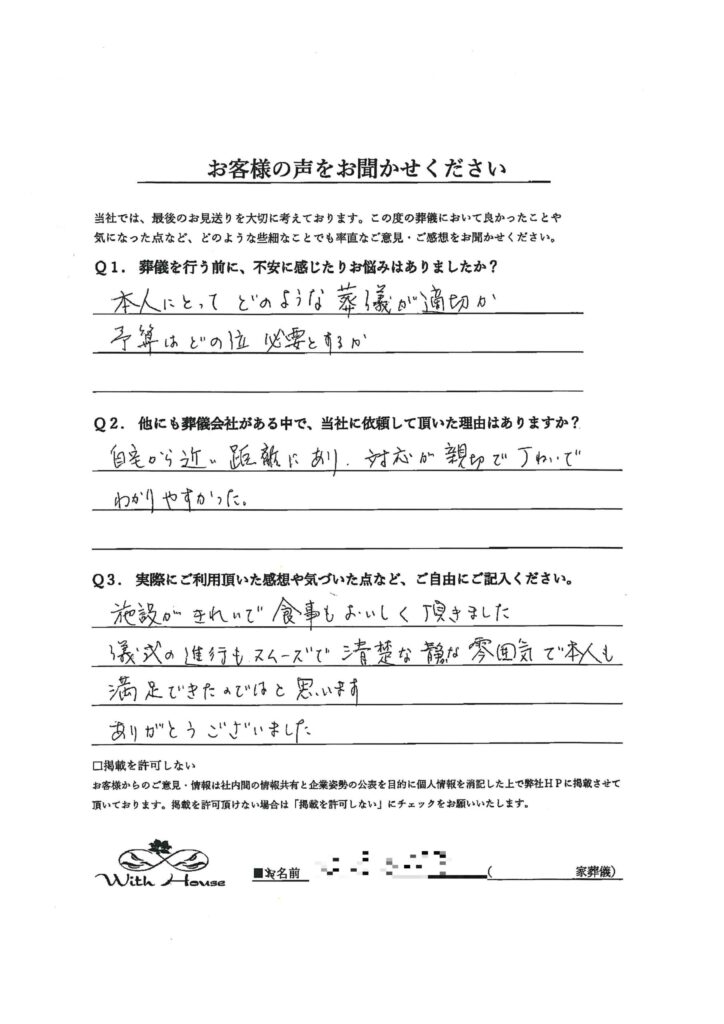 お客様の声をお聞かせください
当社では、最後のお見送りを大切に考えております。この度の葬儀において良かったことや
気になった点など、どのような些細なことでも率直なご意見・ご感想をお聞かせください。
Q1. 葬儀を行う前に、不安に感じたりお悩みはありましたか?
本人にとって どのような 葬儀が適切か
予算はどの位 必要とするか
Q2. 他にも葬儀会社がある中で、当社に依頼して頂いた理由はありますか?
自宅から近い 距離にあり、対応が 親切で丁ねいで
わかりやすかった。
Q3. 実際にご利用頂いた感想や気づいた点など、ご自由にご記入ください。
施設が きれいで 食事も おいしく 頂きました
儀式の進行もスムーズで 清楚な 静な 雰囲気で本人も
満足できたのではと 思います
ありがとう ございました
□掲載を許可しない
お客様からのご意見・情報は社内間の情報共有と企業姿勢の公表を目的に個人情報を消記した上で弊社HPに掲載させて
頂いております。掲載を許可頂けない場合は「掲載を許可しない」にチェックをお願いいたします。
With House
■お名前 ( 家葬儀)